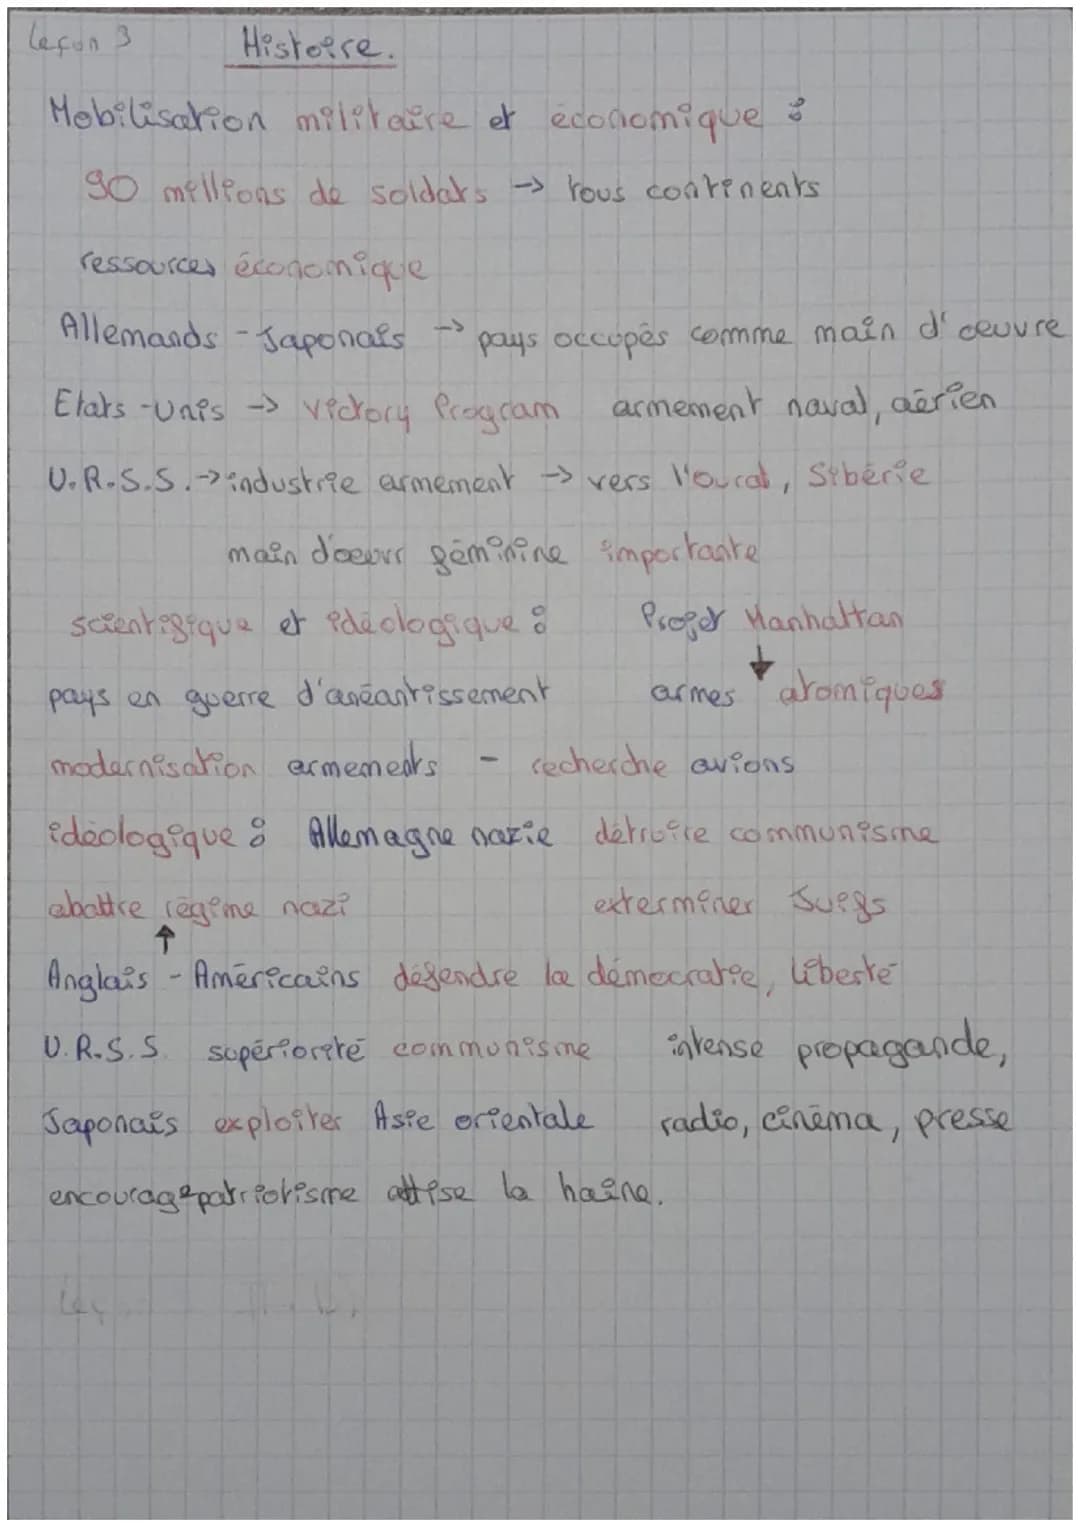 Leçon 3 Histoire.
Mobilisation militaire et économique :
90 millions de soldats -> tous continents
ressources économique
Allemands - Japonais -> pays occupés comme main d'oeuvre
Etats-Unis -> Victory Program armement naval, aérien
U.R.S.S. -> industrie armement -> vers l'oural, Sibérie
main d'oeuvr féminine importante
scientifique et idéologique : Projet Manhattan
↓
pays en guerre d'anéantissement armes atomiques
modernisation armements - recherche avions
idéologique : Allemagne nazie détruire communisme
abattre régime nazi exterminer Juifs
↑
Anglais - Américains défendre la démocratie, liberté
U.R.S.S. supériorité communisme intense propagande,
Japonais exploiter Asie orientale radio, cinéma, presse
encourage patriotisme attise la haine.